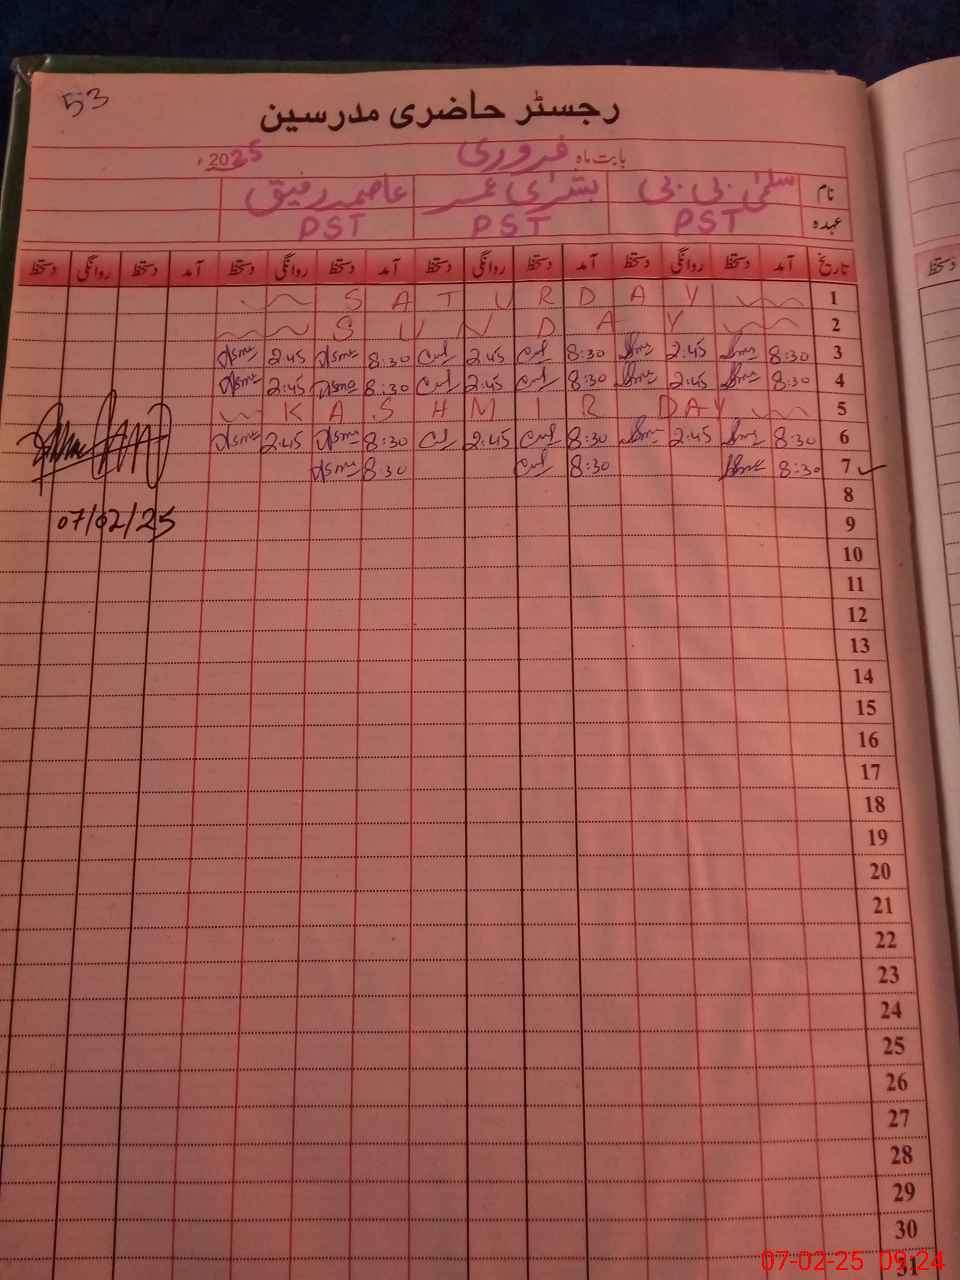 53
رجسٹر حاضری مدرسین
بابت ماہ فروری 2025ء
نام سلمیٰ بی بی بشریٰ عاصمہ رفیق
عہدہ PST PST PST
تاریخ آمد دستخط روانگی دستخط آمد دستخط روانگی دستخط آمد دستخط روانگی دستخط آمد دستخط روانگی دستخط
1 SATURDAY
2 SUNDAY
3 8:30 2:45 8:30 2:45 8:30 Asma 2:45 Asma
4 8:30 2:45 8:30 2:45 8:30 Asma 2:45 Asma
5 KASHMIR DAY
6 8:30 2:45 8:30 2:45 8:30 Asma 2:45 Asma
7 ✓ 8:30 8:30 8:30 Asma
07/02/25
8
9
10
11
12
13
14
15
16
17
18
19
20
21
22
23
24
25
26
27
28
29
30
31
دستخط
07-02-25 09:24